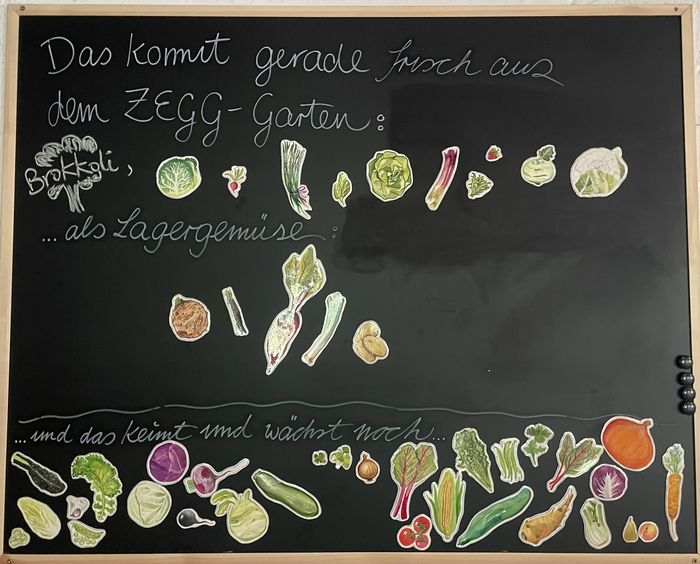 Das kommt gerade frisch aus
dem ZEGG-Garten:
Brokkoli,
... als Lagergemüse:
...und das keimt und wächst noch...